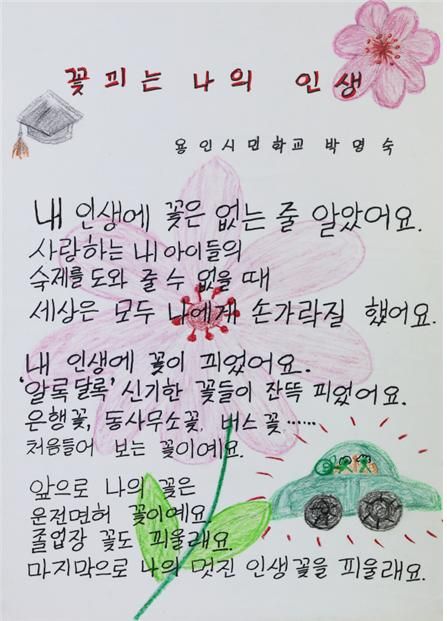 꽃피는 나의 인생
용인시민학교 박명숙
내 인생에 꽃은 없는 줄 알았어요.
사랑하는 내 아이들의
숙제를 도와 줄 수 없을 때
세상은 모두 나에게 손가락질 했어요.
내 인생에 꽃이 피었어요.
'알록달록' 신기한 꽃들이 잔뜩 피었어요.
은행꽃, 동사무소꽃, 버스꽃……
처음들어 보는 꽃이예요.
앞으로 나의 꽃은
운전면허 꽃이예요.
졸업장 꽃도 피울래요.
마지막으로 나의 멋진 인생꽃을 피울래요.